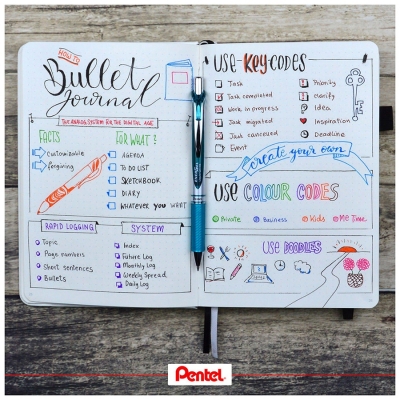 HOW TO
Bullet
Journal
THE ANALOG SYSTEM FOR THE DIGITAL AGE
FACTS
Customizable
forgiving
FOR WHAT?
AGENDA
TO DO LIST
SKETCHBOOK
DIARY
WHATEVER YOU WANT
RAPID LOGGING
Topic
Page numbers
Short sentences
Bullets
SYSTEM
Index
Future Log
Monthly Log
Weekly Spread
Daily Log
USE KEY-CODES
Task
Task completed
Work in progress
Task migrated
Task canceled
Event
Priority
Clarify
Idea
Inspiration
Deadline
create your own
USE COLOUR CODES
Private
Business
Kids
ME Time
USE DOODLES
Pentel